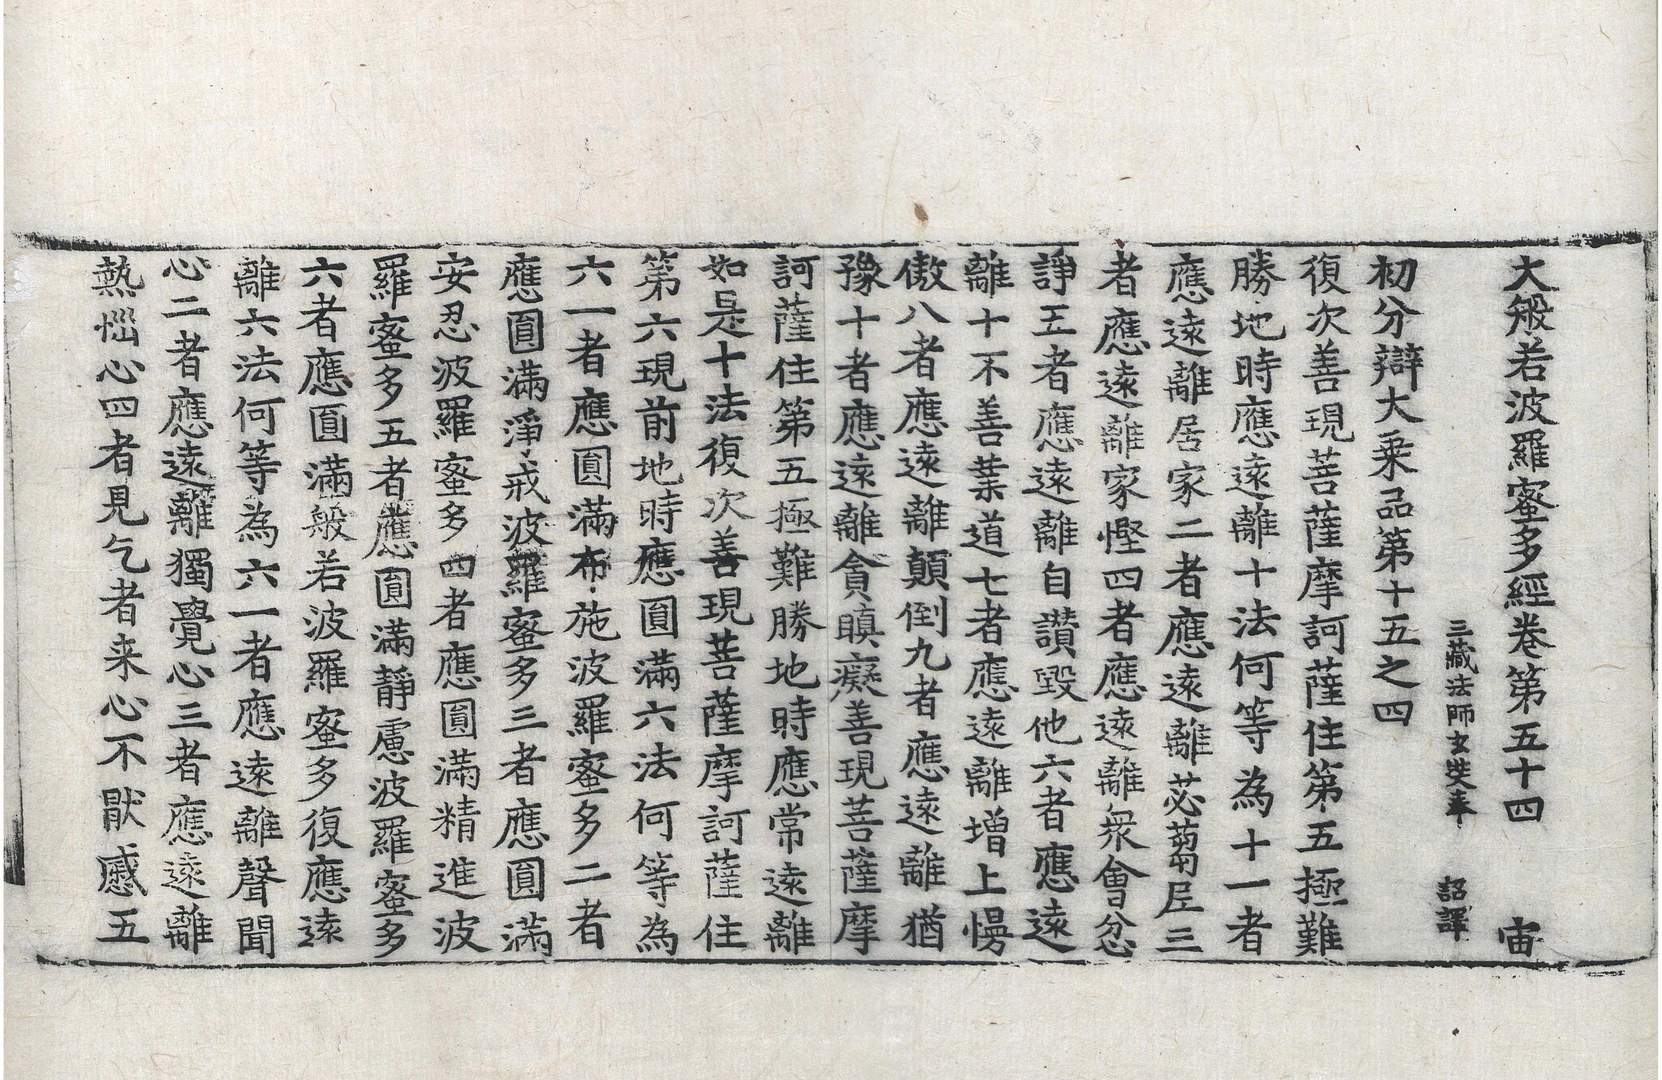 大般若波羅蜜多經卷第五十四 宙
三藏法師玄奘奉 詔譯
初分辯大乘品第十五之四
復次善現菩薩摩訶薩住第五極難
勝地時應遠離十法何等為十一者
應遠離居家二者應遠離苾蒭尼三
者應遠離家慳四者應遠離衆會忿
諍五者應遠離自讚毀他六者應遠
離十不善業道七者應遠離增上慢
傲八者應遠離顛倒九者應遠離猶
豫十者應遠離貪瞋癡善現菩薩摩
訶薩住第五極難勝地時應常遠離
如是十法復次善現菩薩摩訶薩住
第六現前地時應圓滿六法何等為
六一者應圓滿布施波羅蜜多二者
應圓滿淨戒波羅蜜多三者應圓滿
安忍波羅蜜多四者應圓滿精進波
羅蜜多五者應圓滿靜慮波羅蜜多
六者應圓滿般若波羅蜜多復應遠
離六法何等為六一者應遠離聲聞
心二者應遠離獨覺心三者應遠離
熱惱心四者見乞者来心不猒慼五